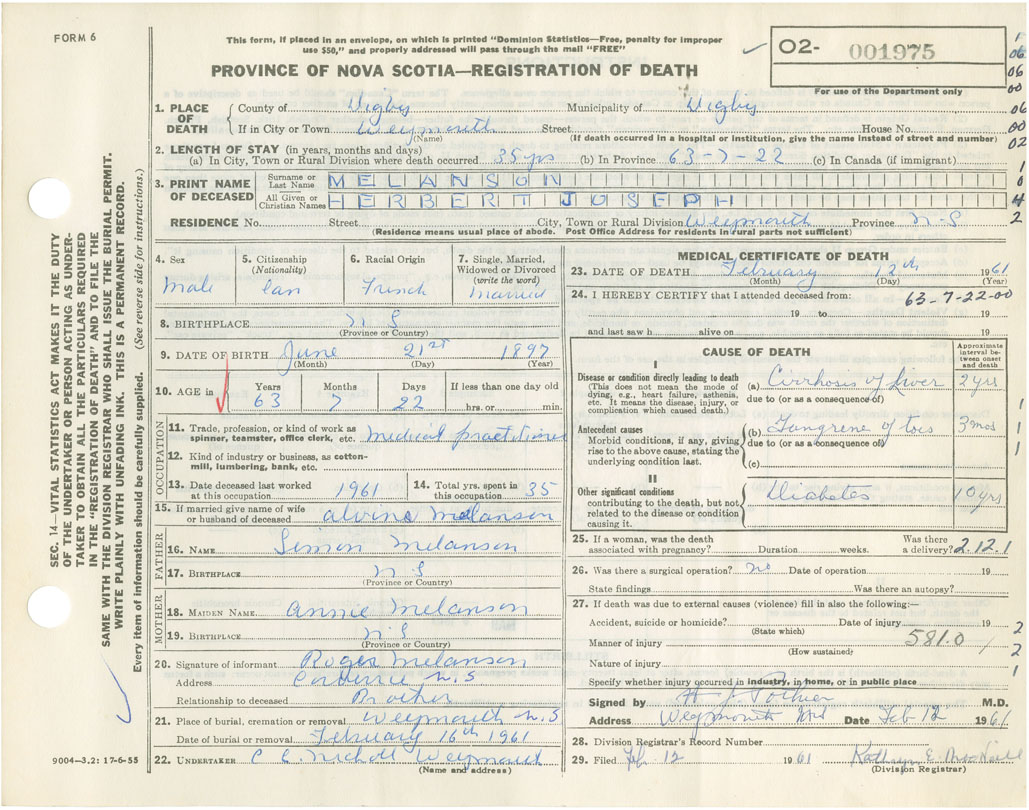 FORM 6
This form, if placed in an envelope, on which is printed "Dominion Statistics—Free, penalty for improper
use $50," and properly addressed will pass through the mail "FREE"
O2- 001975
For use of the Department only
PROVINCE OF NOVA SCOTIA—REGISTRATION OF DEATH
1. PLACE OF DEATH
County of Digby Municipality of Digby
If in City or Town Weymouth Street House No.
(Name) (If death occurred in a hospital or institution, give the name instead of street and number)
2. LENGTH OF STAY (in years, months and days)
(a) In City, Town or Rural Division where death occurred 35 yrs (b) In Province 63-7-22 (c) In Canada (if immigrant)
3. PRINT NAME OF DECEASED
Surname or Last Name MELANSON
All Given or Christian Names HERBERT JOSEPH
RESIDENCE No. Street City, Town or Rural Division Weymouth Province N-S
(Residence means usual place of abode. Post Office Address for residents in rural parts not sufficient)
4. Sex
Male
5. Citizenship
(Nationality)
Can
6. Racial Origin
French
7. Single, Married,
Widowed or Divorced
(write the word)
Married
8. BIRTHPLACE N S
(Province or Country)
9. DATE OF BIRTH June 21st 1897
(Month) (Day) (Year)
10. AGE in
Years Months Days If less than one day old
63 7 22 hrs. or min.
OCCUPATION
11. Trade, profession, or kind of work as
spinner, teamster, office clerk, etc. Medical practitioner
12. Kind of industry or business, as cotton-
mill, lumbering, bank, etc.
13. Date deceased last worked
at this occupation 1961
14. Total yrs. spent in
this occupation 35
15. If married give name of wife
or husband of deceased Alvina Melanson
FATHER
16. NAME Simon Melanson
17. BIRTHPLACE N S
(Province or Country)
MOTHER
18. MAIDEN NAME Annie Melanson
19. BIRTHPLACE N. S
(Province or Country)
20. Signature of informant Roger Melanson
Address N.S
Relationship to deceased Brother
21. Place of burial, cremation or removal Weymouth N.S
Date of burial or removal February 16th 1961
22. UNDERTAKER C E Nicholl Weymouth
(Name and address)
MEDICAL CERTIFICATE OF DEATH
23. DATE OF DEATH February 12th 1961
(Month) (Day) (Year)
24. I HEREBY CERTIFY that I attended deceased from: 63-7-22-00
19 to 19
and last saw h alive on 19
CAUSE OF DEATH
Approximate
interval be-
tween onset
and death
I
Disease or condition directly leading to death
(This does not mean the mode of
dying, e.g., heart failure, asthenia,
etc. It means the disease, injury, or
complication which caused death.)
(a) Cirrhosis of liver 2 yrs
due to (or as a consequence of)
Antecedent causes
Morbid conditions, if any, giving
rise to the above cause, stating the
underlying condition last.
(b) Gangrene of toes 3 mos
due to (or as a consequence of)
(c)
II
Other significant conditions
contributing to the death, but not
related to the disease or condition
causing it.
Diabetes 10 yrs
25. If a woman, was the death
associated with pregnancy? Duration weeks. Was there
a delivery? 2.12.1
26. Was there a surgical operation? no Date of operation 19
State findings Was there an autopsy?
27. If death was due to external causes (violence) fill in also the following:—
Accident, suicide or homicide? Date of injury 19
(State which)
Manner of injury 581.0
(How sustained)
Nature of injury
Specify whether injury occurred in industry, in home, or in public place
Signed by H J Pothier M.D.
Address Weymouth Date Feb 12 1961
28. Division Registrar's Record Number
29. Filed Feb 12 1961 Kathryn E.
(Division Registrar)
1
06
06
00
06
00
02
1
0
4
2
1
1
1
2
/ 2
1
SEC. 14—VITAL STATISTICS ACT MAKES IT THE DUTY
OF THE UNDERTAKER OR PERSON ACTING AS UNDER-
TAKER TO OBTAIN ALL THE PARTICULARS REQUIRED
IN THE "REGISTRATION OF DEATH" AND TO FILE THE
SAME WITH THE DIVISION REGISTRAR WHO SHALL ISSUE THE BURIAL PERMIT.
WRITE PLAINLY WITH UNFADING INK. THIS IS A PERMANENT RECORD.
Every item of information should be carefully supplied. (See reverse side for instructions.)
9004—3.2: 17-6-55